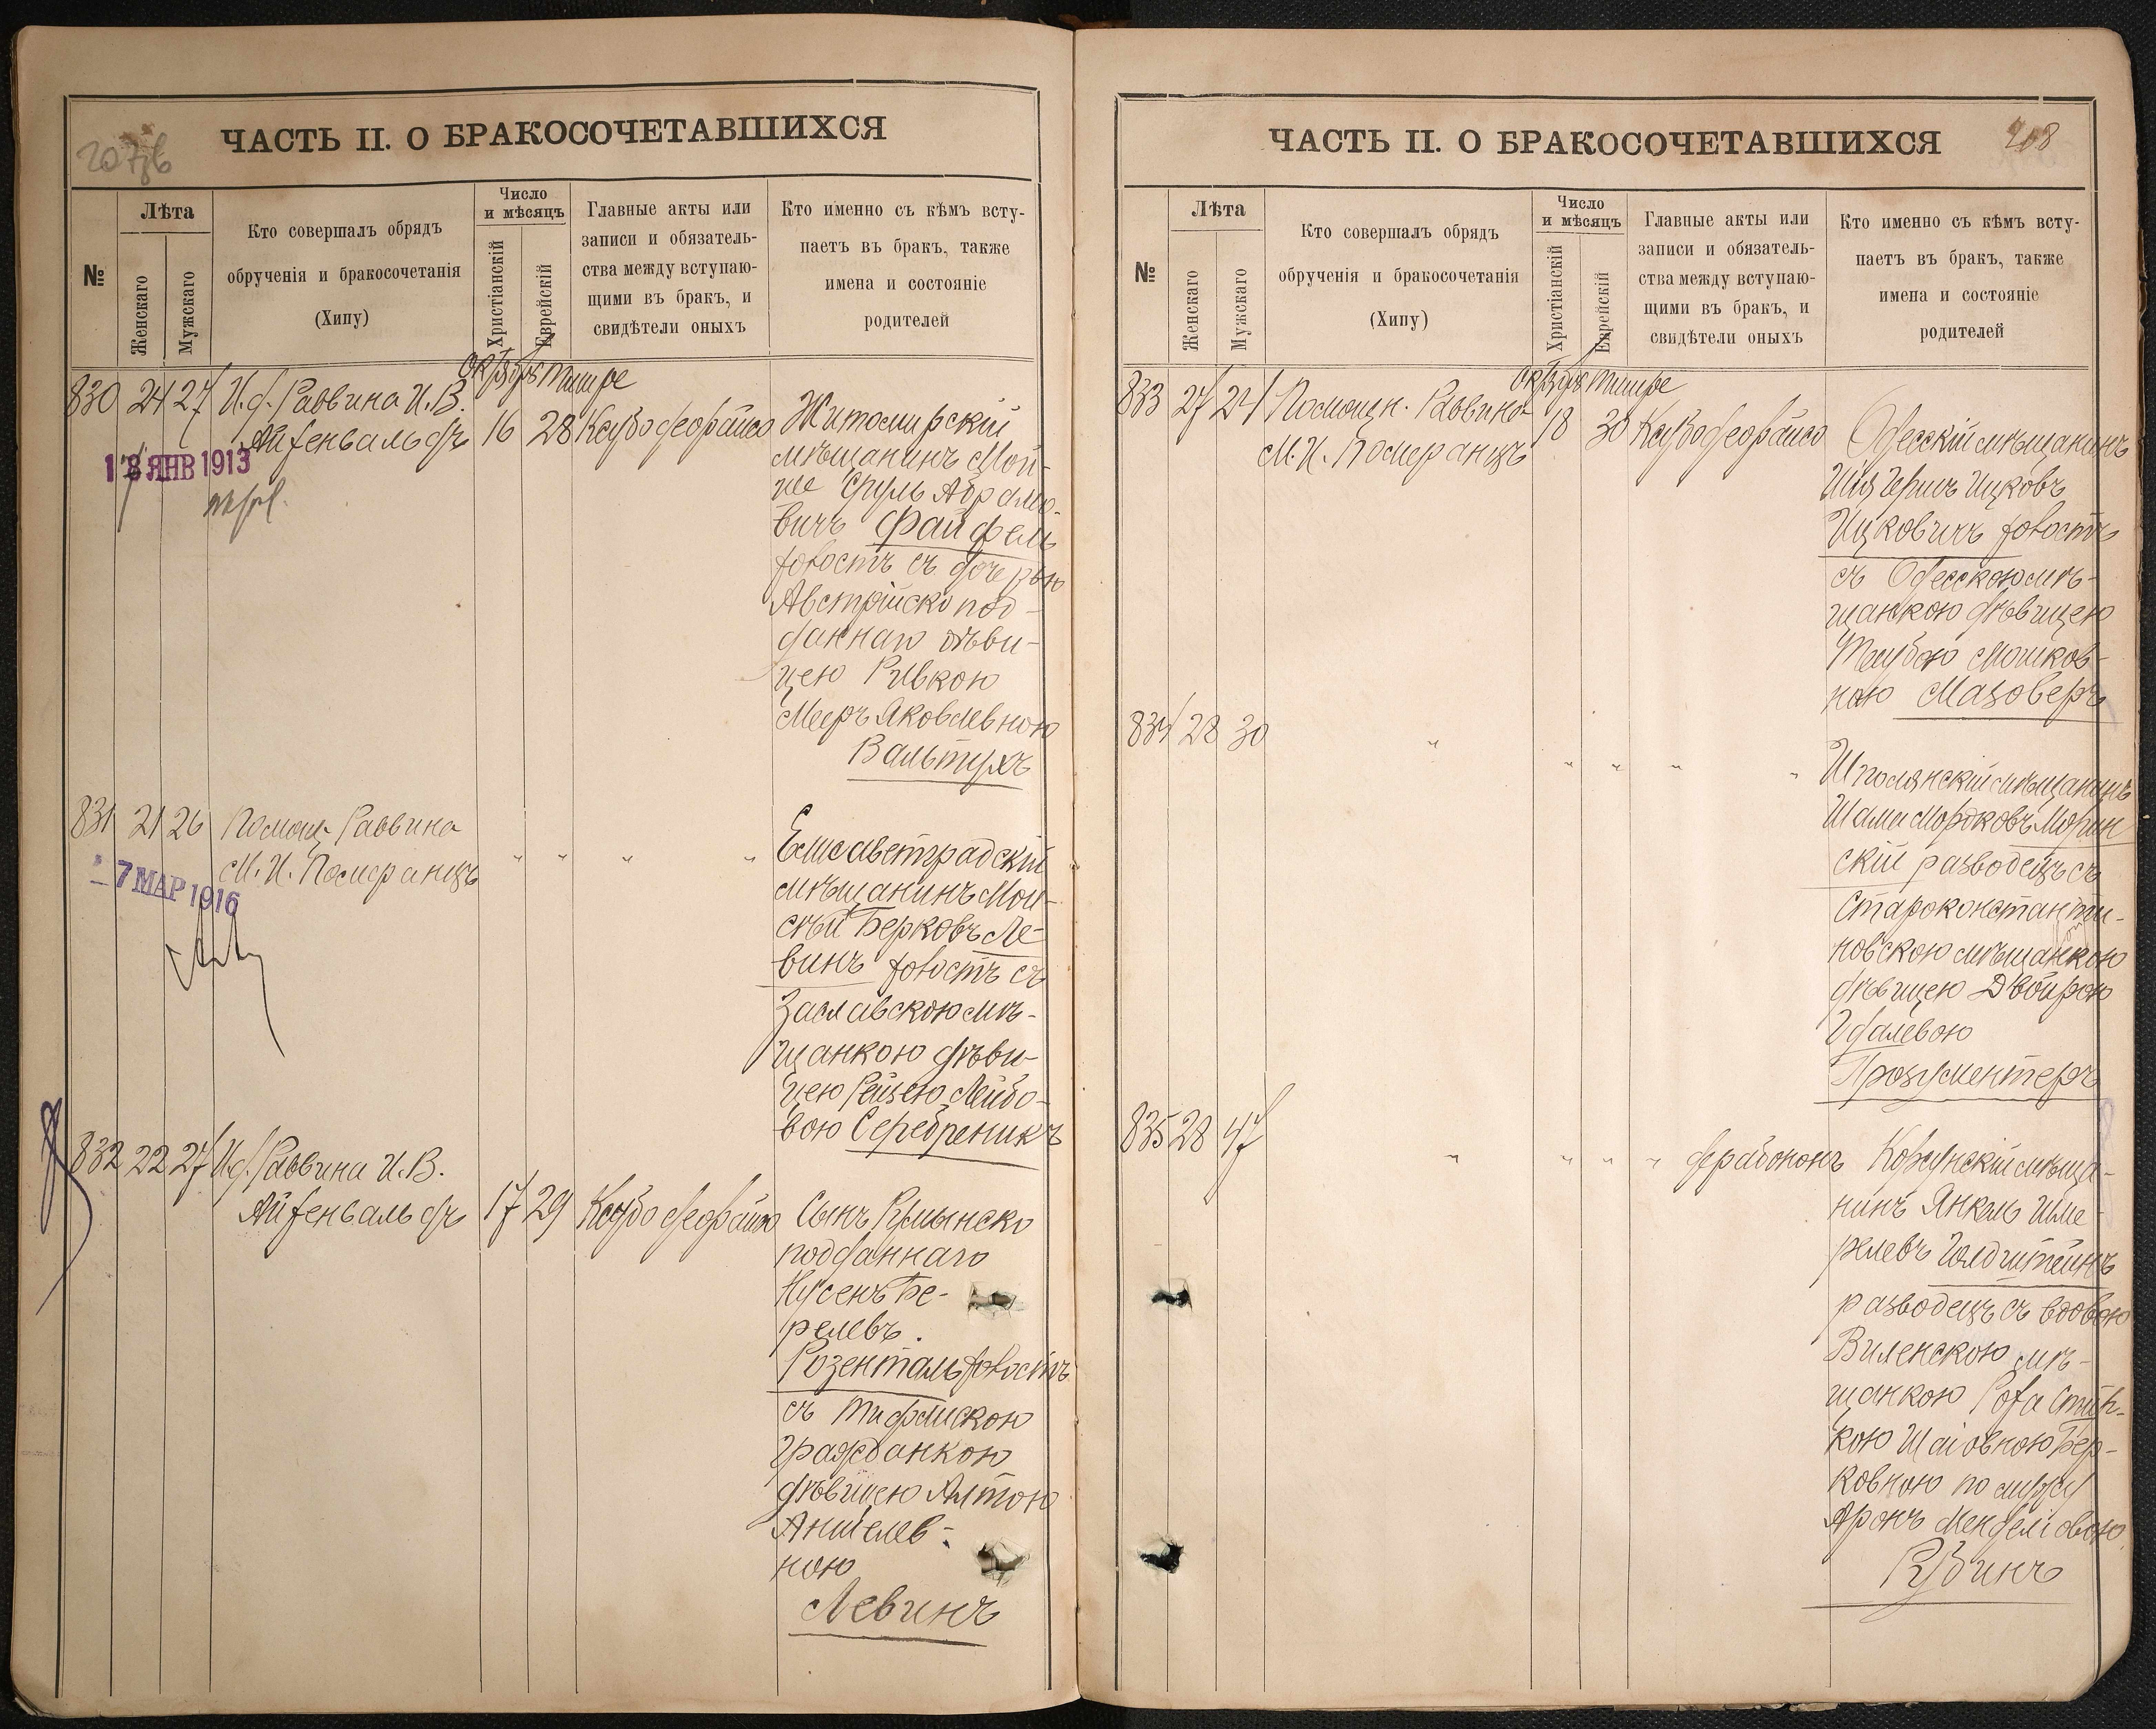 207об
ЧАСТЬ II. О БРАКОСОЧЕТАВШИХСЯ
№
Лѣта
Женскаго
Мужскаго
Кто совершалъ обрядъ
обрученія и бракосочетанія
(Хипу)
Число
и мѣсяцъ
Христіанскій
Еврейскій
Главные акты или
записи и обязатель-
ства между вступаю-
щими въ бракъ, и
свидѣтели оныхъ
Кто именно съ кѣмъ всту-
паетъ въ бракъ, также
имена и состояніе
родителей
Октябрь Тишре
830 24 27 И.д. Раввина И.В.
Айзенвальдъ 16 28
18 ЯНВ 1913
Житомирскій
мѣщанинъ Мой-
ше Сруль Абрамо-
вичъ Файфель
холостъ съ дочерью
Австрійско под-
даннаго дѣви-
цею Ривкою
Мееръ Яковлевною
Вальтухъ
831 21 26 Помощ. Раввина
М.И. Померанцъ " " " "
7 МАР 1916
Елисаветградскій
мѣщанинъ Мои-
сѣй Берковъ Ле-
винъ холостъ съ
Заславскою мѣ-
щанкою дѣви-
цею Рейзею Лейбо-
вою Серебреникъ
832 22 27 И.д. Раввина И.В.
Айзенвальдъ 17 29
Сынъ Румынско
подданнаго
Нусенъ Бе-
релевъ
Розенталь холостъ
съ Тифлискою
гражданкою
дѣвицею Антою
Аншелев-
ною
Левинъ
208
ЧАСТЬ II. О БРАКОСОЧЕТАВШИХСЯ
№
Лѣта
Женскаго
Мужскаго
Кто совершалъ обрядъ
обрученія и бракосочетанія
(Хипу)
Число
и мѣсяцъ
Христіанскій
Еврейскій
Главные акты или
записи и обязатель-
ства между вступаю-
щими въ бракъ, и
свидѣтели оныхъ
Кто именно съ кѣмъ всту-
паетъ въ бракъ, также
имена и состояніе
родителей
Октябрь Тишре
833 27 27 Помощн. Раввина
М.И. Померанцъ 18 30
Одесскій мѣщанинъ
Шія Герш Ицковъ
Ицковичъ холостъ
съ Одесскою мѣ-
щанкою дѣвицею
Таубою Мошков-
ною Мазоверъ
834 28 30 " " " " "
Шполянскій мѣщанинъ
Шама Мордковъ Морин
скій разводецъ съ
Староконстанти-
новскою мѣщанкою
дѣвицею Двойрою
Удалевою
Прозументеръ
835 28 47 " " " "
Корсунскій мѣща-
нинъ Янкель Шме-
релевъ Голдштейнъ
разводецъ съ вдовою
Виленскою мѣ-
щанкою
кою Шаіовною Бер-
ковною по мужу
Аронъ Менделіовою
Рубинъ